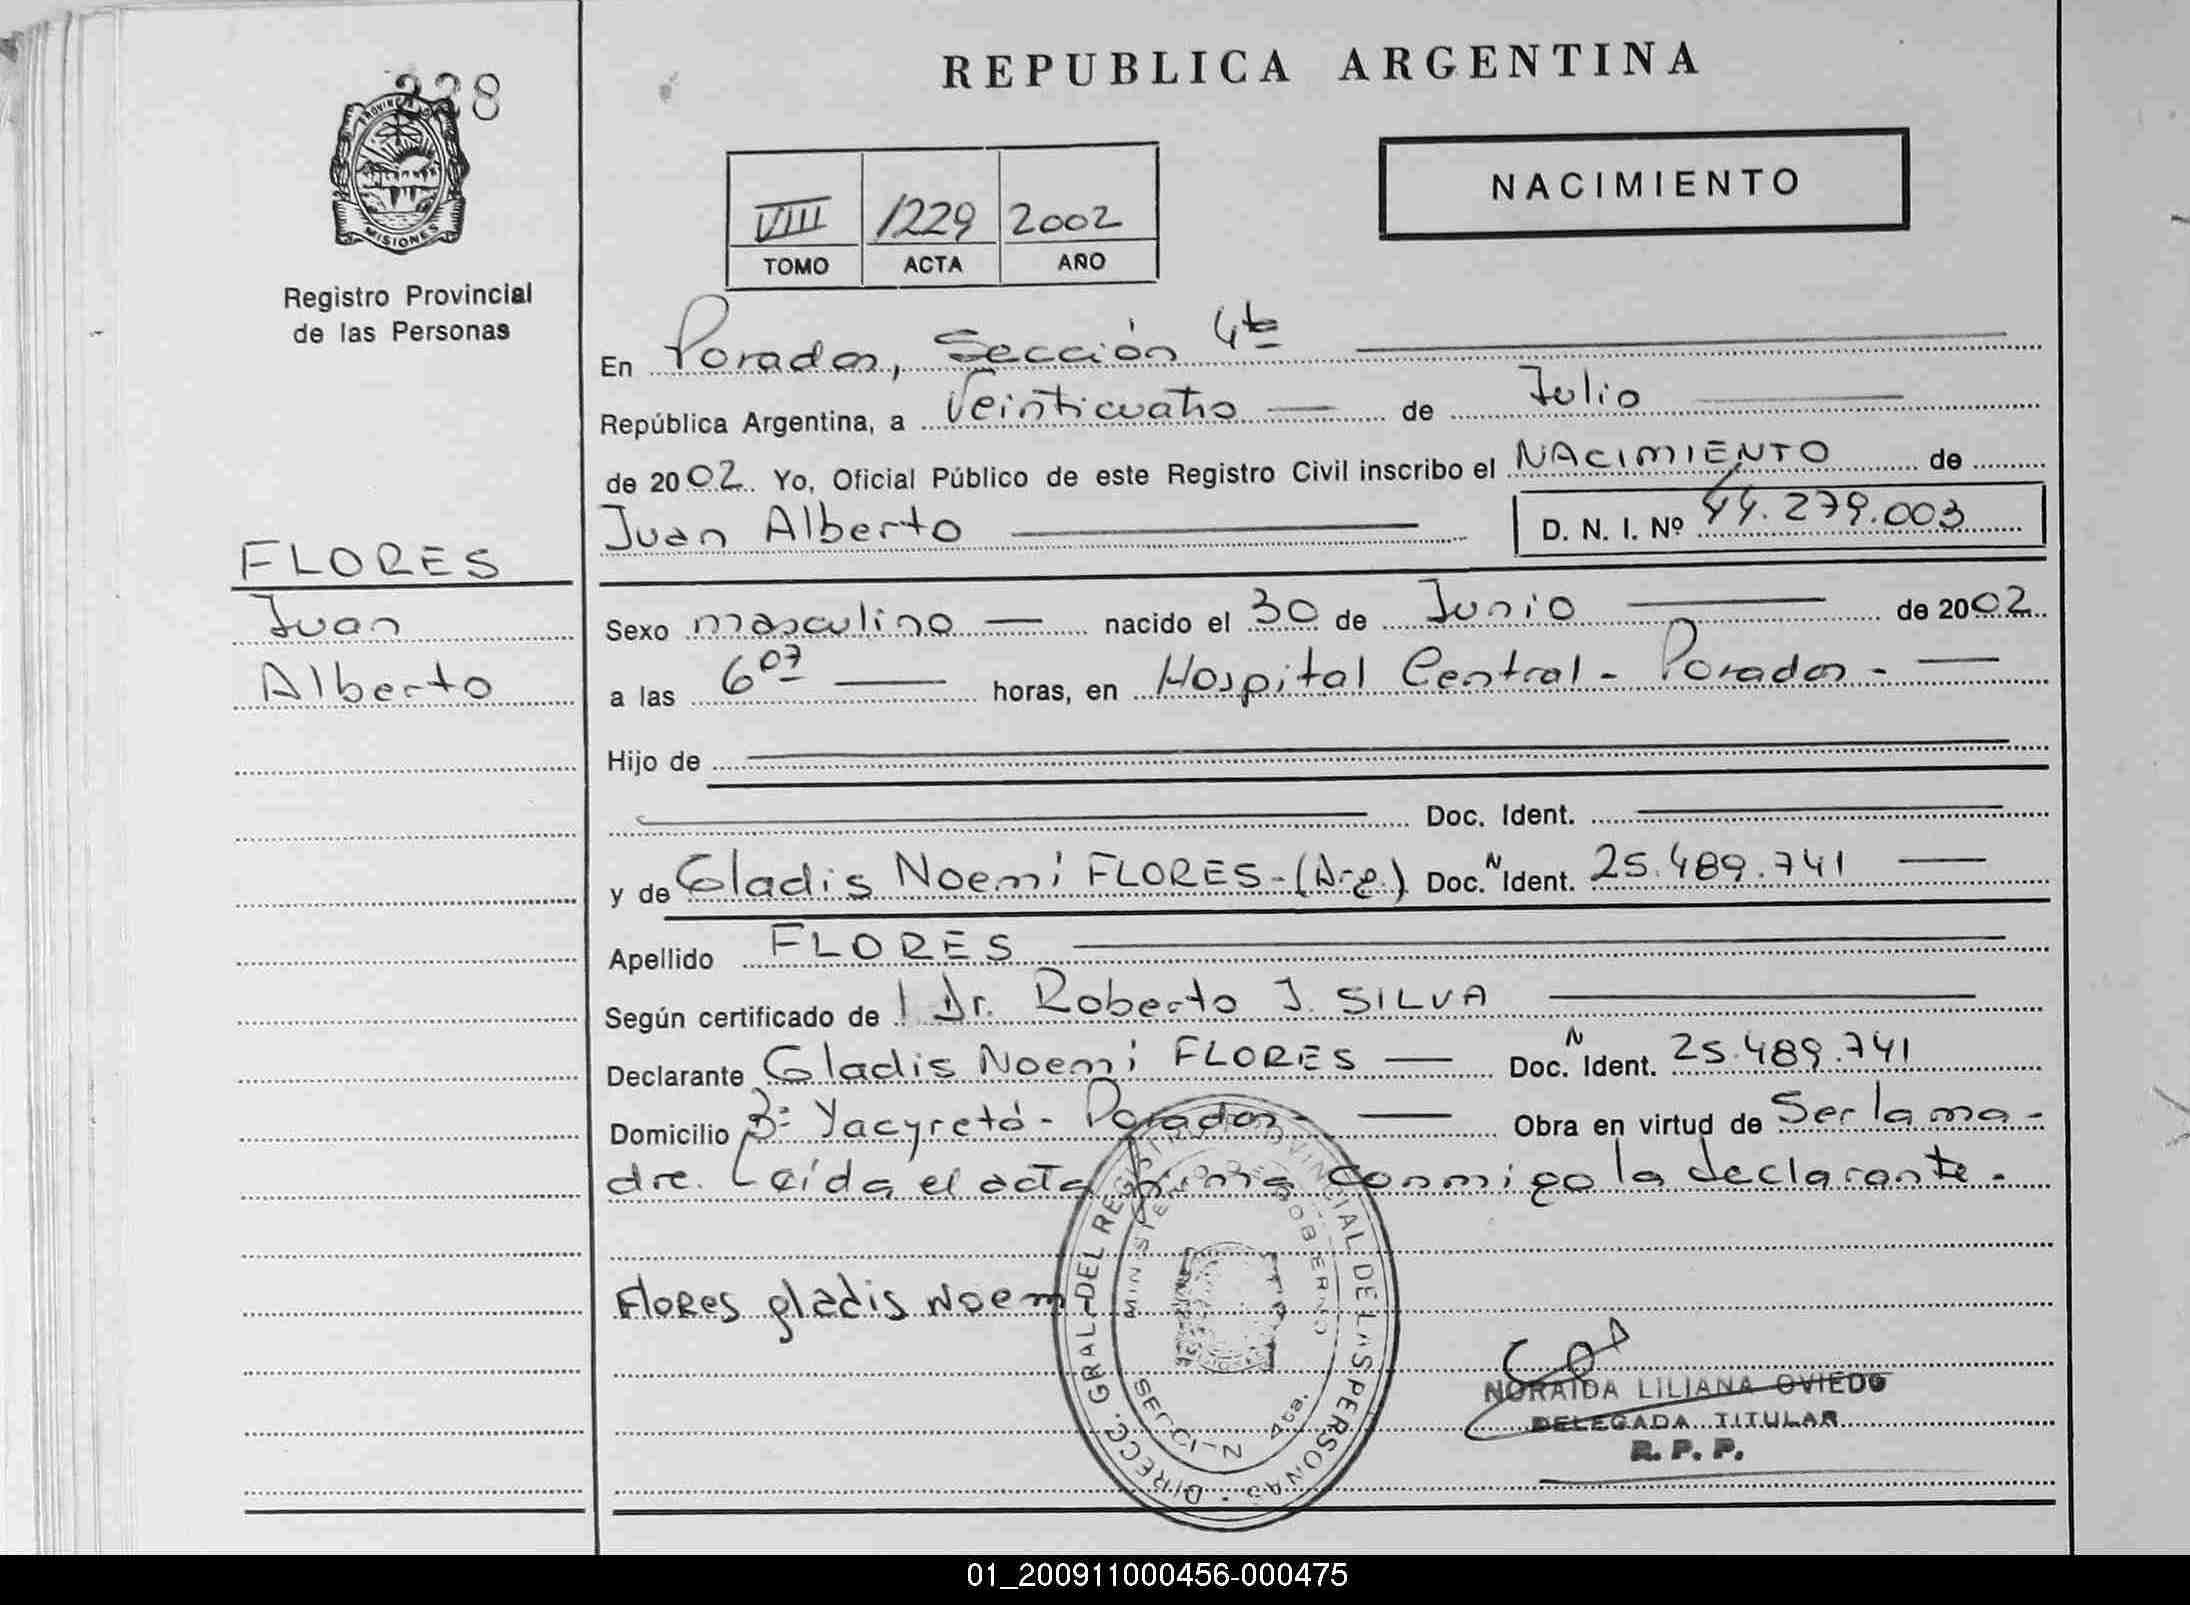 REPUBLICA ARGENTINA
228
PROVINCIA DE
MISIONES
Registro Provincial
de las Personas
NACIMIENTO
VIII 1229 2002
TOMO ACTA AÑO
En Posadas, Sección 4ta
República Argentina, a Veinticuatro de Julio
de 2002. Yo, Oficial Público de este Registro Civil inscribo el NACIMIENTO de
Juan Alberto D. N. I. Nº 44.279.003
FLORES
Juan
Alberto
Sexo masculino nacido el 30 de Junio de 2002
a las 6 07 horas, en Hospital Central - Posadas -
Hijo de
Doc. Ident.
y de Gladis Noemi FLORES - (Arg.) Doc. N Ident. 25.489.741
Apellido FLORES
Según certificado de l Dr. Roberto J. SILVA
Declarante Gladis Noemi FLORES Doc. N Ident. 25.489.741
Domicilio Bº Yacyretá - Posadas - Obra en virtud de Ser la ma-
dre. Leída el acta firma conmigo la declarante.
Flores gladis Noemi
DIRECC. GRAL. DEL REGISTRO PROVINCIAL DE LAS PERSONAS
MINISTERIO DE GOBIERNO
SECCION 4ta.
NORAIDA LILIANA OVIEDO
DELEGADA TITULAR
R. P. P.
01_200911000456-000475